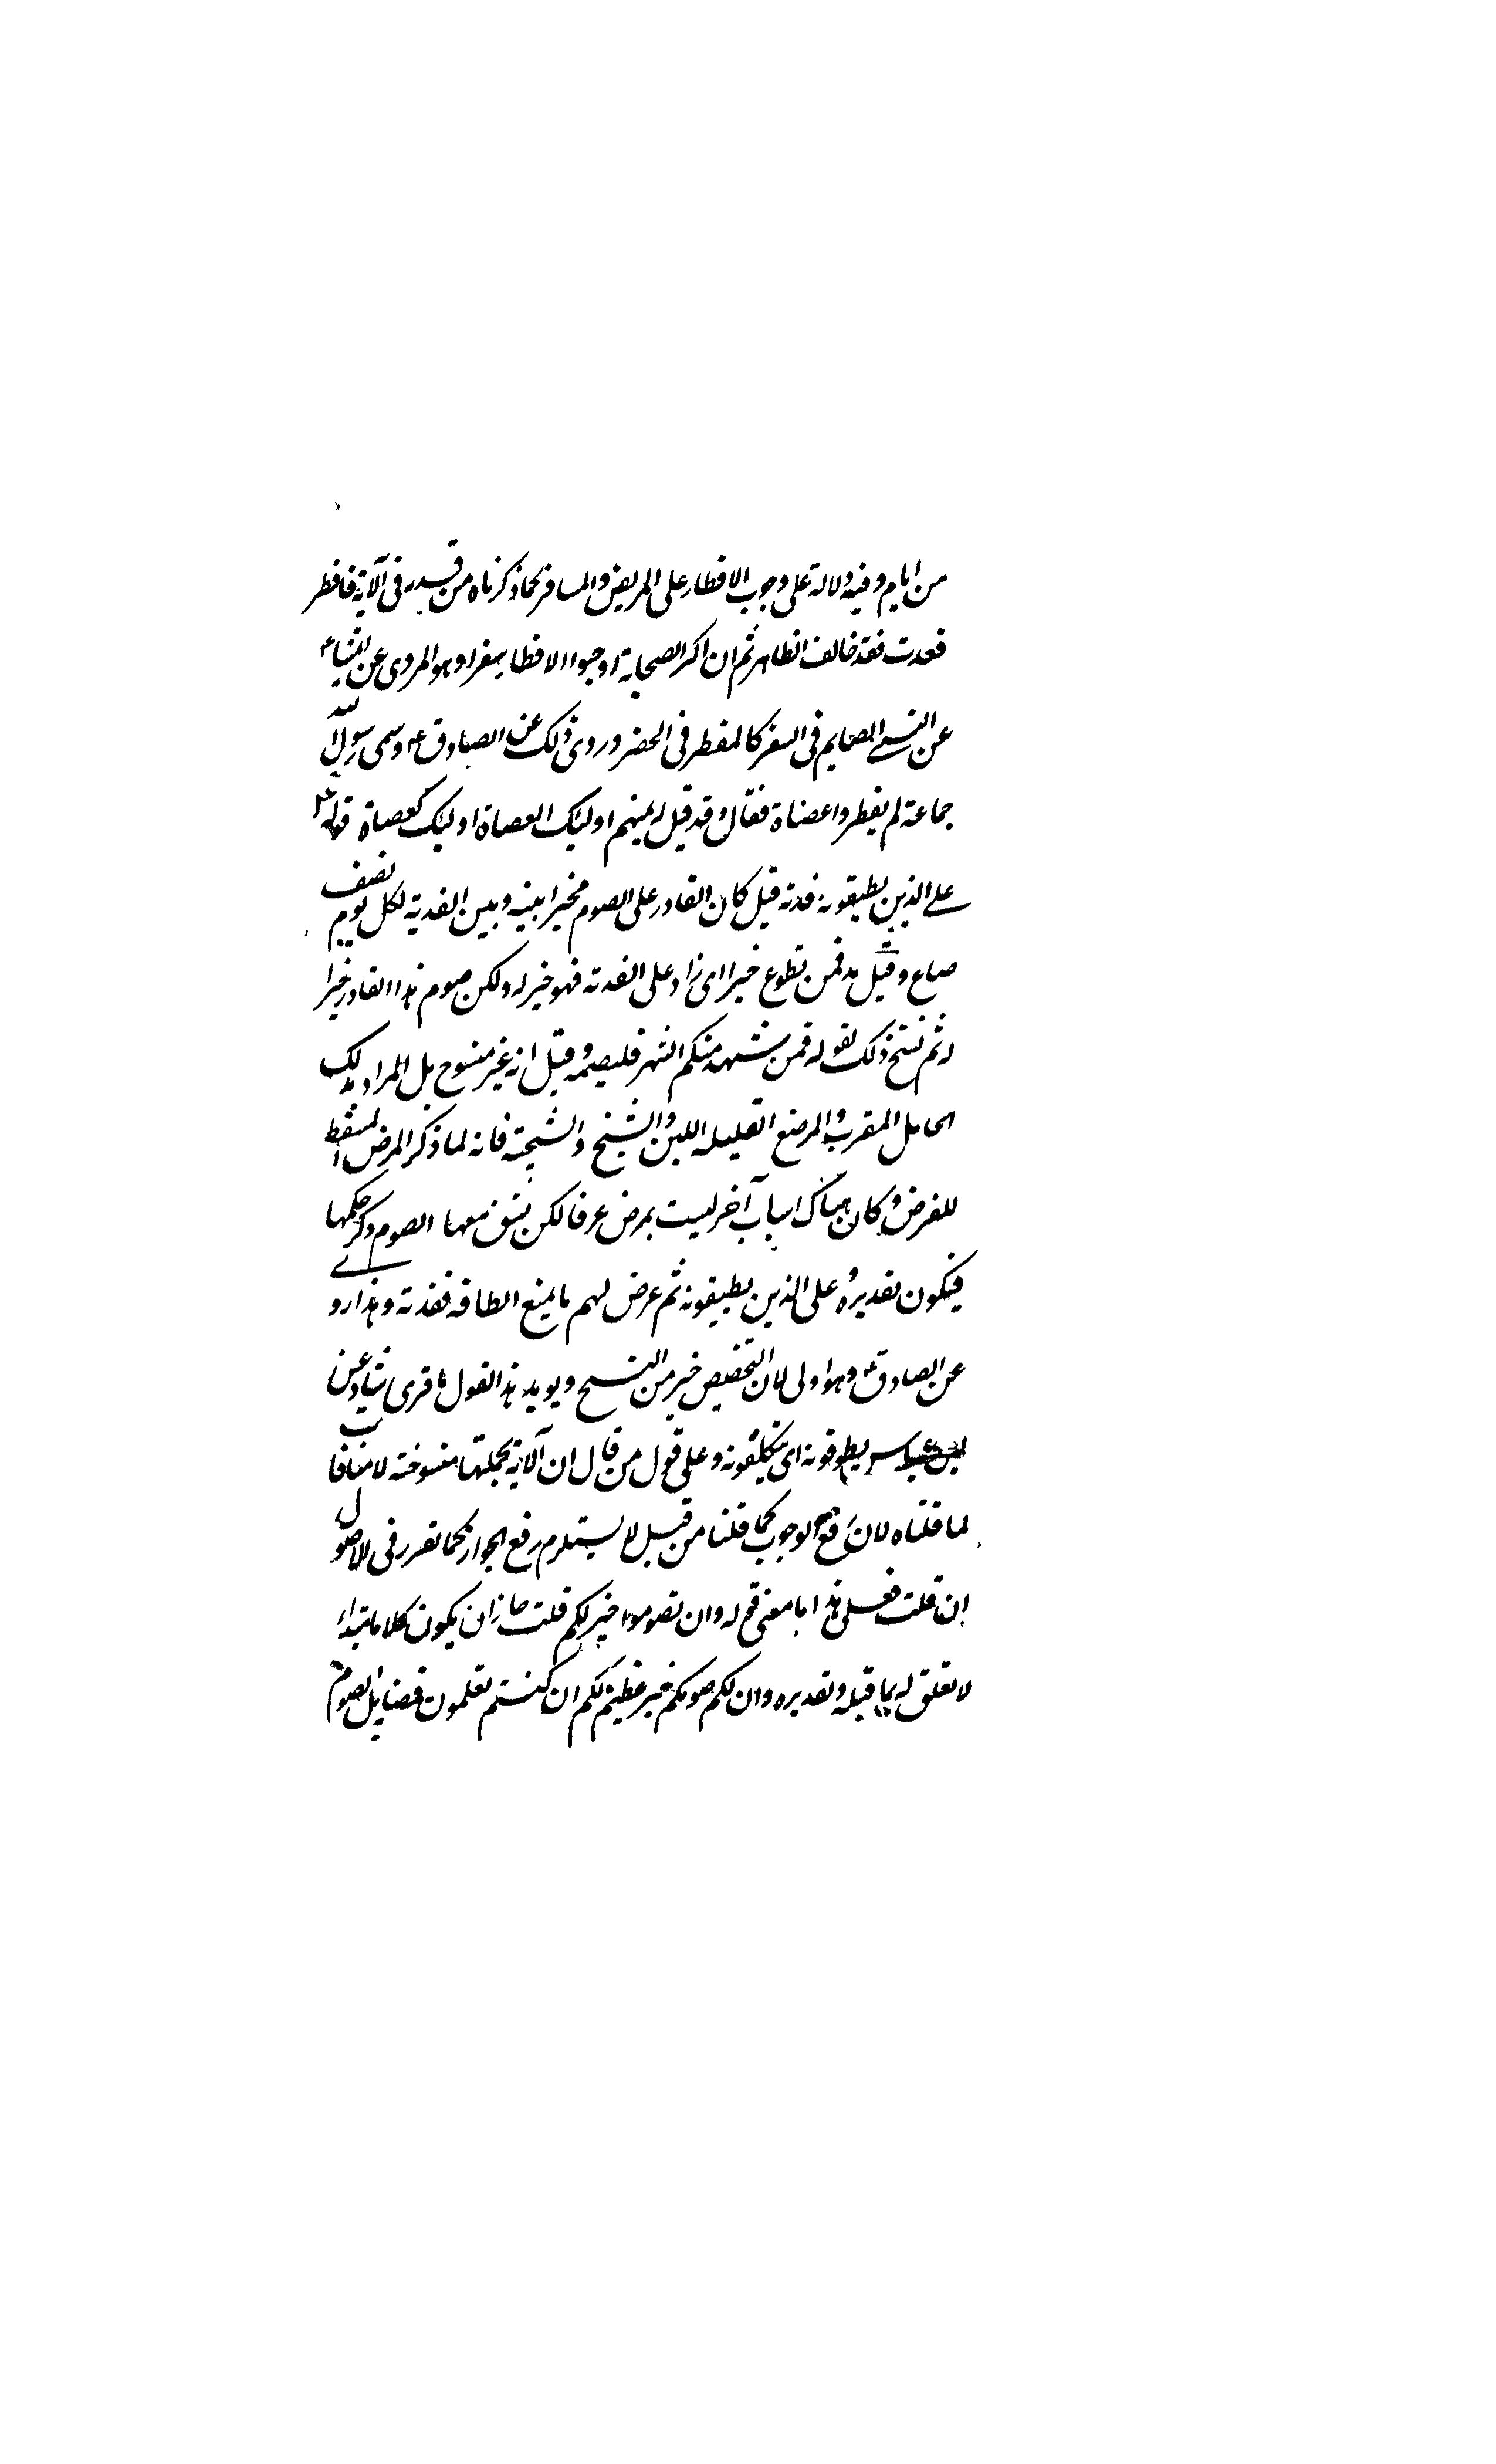 من ايام وفيه دلالة على وجوب الافطار على المريض والمسافر كما ذكرناه من قدر فى الآية فافطر
فعدت فقد خالف الظاهر ثم ان اكثر الصحابة اوجبوا الافطار سفرا وهو المروى عن
عن النبى الصايم فى السفر كالمفطر فى الحضر وروى ذلك عن الصادق ع وسمى رسول الله
جماعة لم يفطروا عصاة فقال وقد قيل له منهم اوليك العصاة اوليك العصاة قوله
على الذين يطيقونه فدية قيل كان القادر على الصوم مخيرا بينه وبين الفدية لكل يوم نصف
صاع وقيل مد فمن تطوع خيرا اى زاد على الفدية فهو خير له ولكن صوم هذا القادر خيرا
له ثم نسخ ذلك بقوله فمن شهد منكم الشهر فليصمه وقيل انه غير منسوخ بل المراد بذلك
الحامل المقرب والمرضع القليلة اللبن والشيخ والشيخة فانه لما ذكر المرض المسقط
للفرض وكان هناك اسباب آخر ليست بمرض عرفا لكن يشق معها الصوم ذكر حكمها
فيكون تقديره على الذين يطيقونه ثم عرض لهم ما يمنع الطاقة ففدية وهذا روى
عن الصادق ع وهو اولى لان التخصيص خير من النسخ ويويد هذا القول ما قرى شاذ عن
ابن عباس يطوقونه اى يتكلفونه وعلى قول من قال ان الآية بجملتها منسوخة لا منافات
لما قلناه لان رفع الوجوب كما قلنا من قبل لا يستلزم رفع الجواز كما تقرر فى الاصول
ان قلت فعلى هذا ما معنى قوله وان تصوموا خير لكم قلت جاز ان يكون كلاما مبتداء
لا تعلق له بما قبله وتقديره وان لكم صومكم خير عظيم لكم ان كنتم تعلمون فضايل الصوم